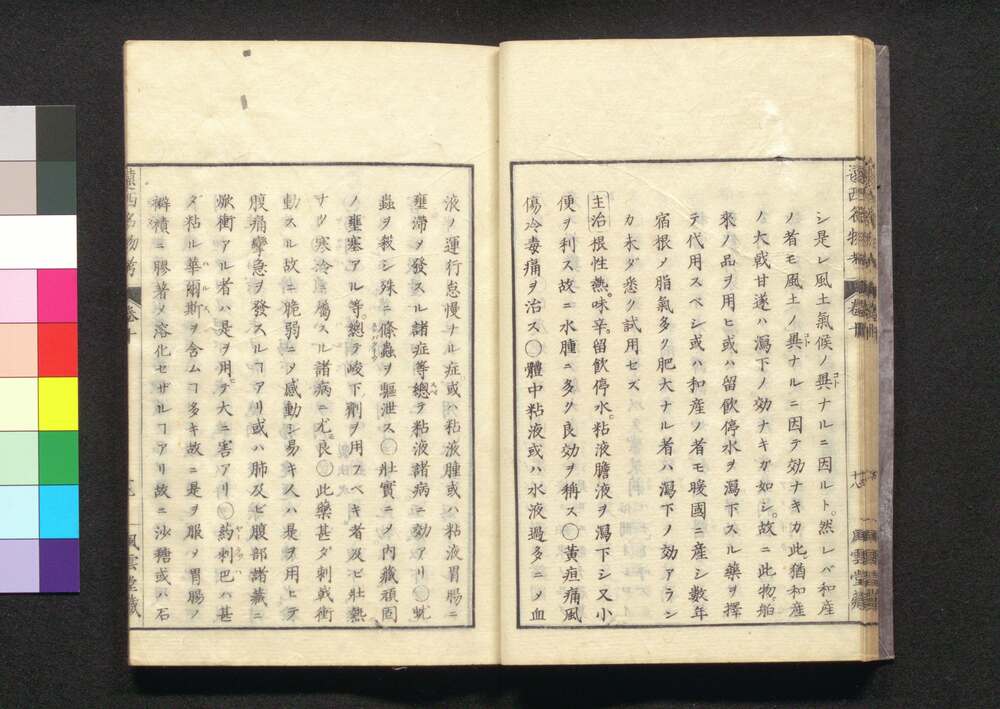 シ是レ風土氣候ノ異ナルニ因ルト。然レバ和産
ノ者モ風土ノ異ナルニ因テ効ナキカ此猶和産
ノ大戟甘遂ハ瀉下ノ効ナキガ如シ。故ニ此物舶
來ノ品ヲ用ヒ或ハ留飲停水ヲ瀉下スル藥ヲ擇
テ代用スベシ或ハ和産ノ者モ暖國ニ産シ數年
宿根〆脂氣多ク肥大ナル者ハ瀉下ノ効アラン
カ未ダ悉ク試用セズ
主治 根性熱。味辛。留飲停水。粘液膽液ヲ瀉下シ又小
便ヲ利ス故ニ水腫ニ多ク良効ヲ稱ス○黄疸痛風
傷冷毒痛ヲ治ス○體中粘液或ハ水液過多ニ〆血
液ノ運行怠慢ナル症。或ハ粘液腫或ハ粘液胃腸ニ
壅滯〆發スル諸症等總テ粘液諸病ニ効アリ○蚘
蟲ヲ殺シ殊ニ條蟲ヲ驅泄ス○壯實ニ〆内臟頑固
ノ壅塞アル等。總テ峻下劑ヲ用スベキ者及ビ壯熱
ナク寒冷ニ屬スル諸病ニ尤良○此藥甚ダ刺戟衝
動スル故ニ脆弱ニ〆感動シ易キ人ハ是ヲ用ヒテ
腹痛攣急ヲ發スルヿアリ或ハ肺及ビ腹部諸臟ニ
焮衝アル者ハ是ヲ用テ大ニ害アリ○葯刺巴ハ甚
ダ粘ル華爾斯ヲ含ムヿ多キ故ニ是ヲ服〆胃腸ノ
襞積ニ膠著〆溶化セザルヿアリ故ニ沙糖或ハ石
遠西名物考 卷十
風雲堂藏